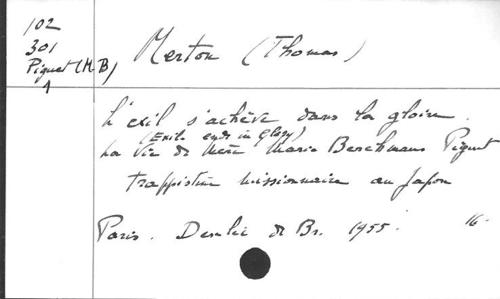 102
301
Piguet (M B)
1
Merton (Thomas)
L'exil s'achève dans la gloire.
(Exile ends in Glory)
La Vie de Mère Marie Berchmans Piguet
trappistine missionnaire au Japon
Paris. Desclée de Br. 1955. 16-